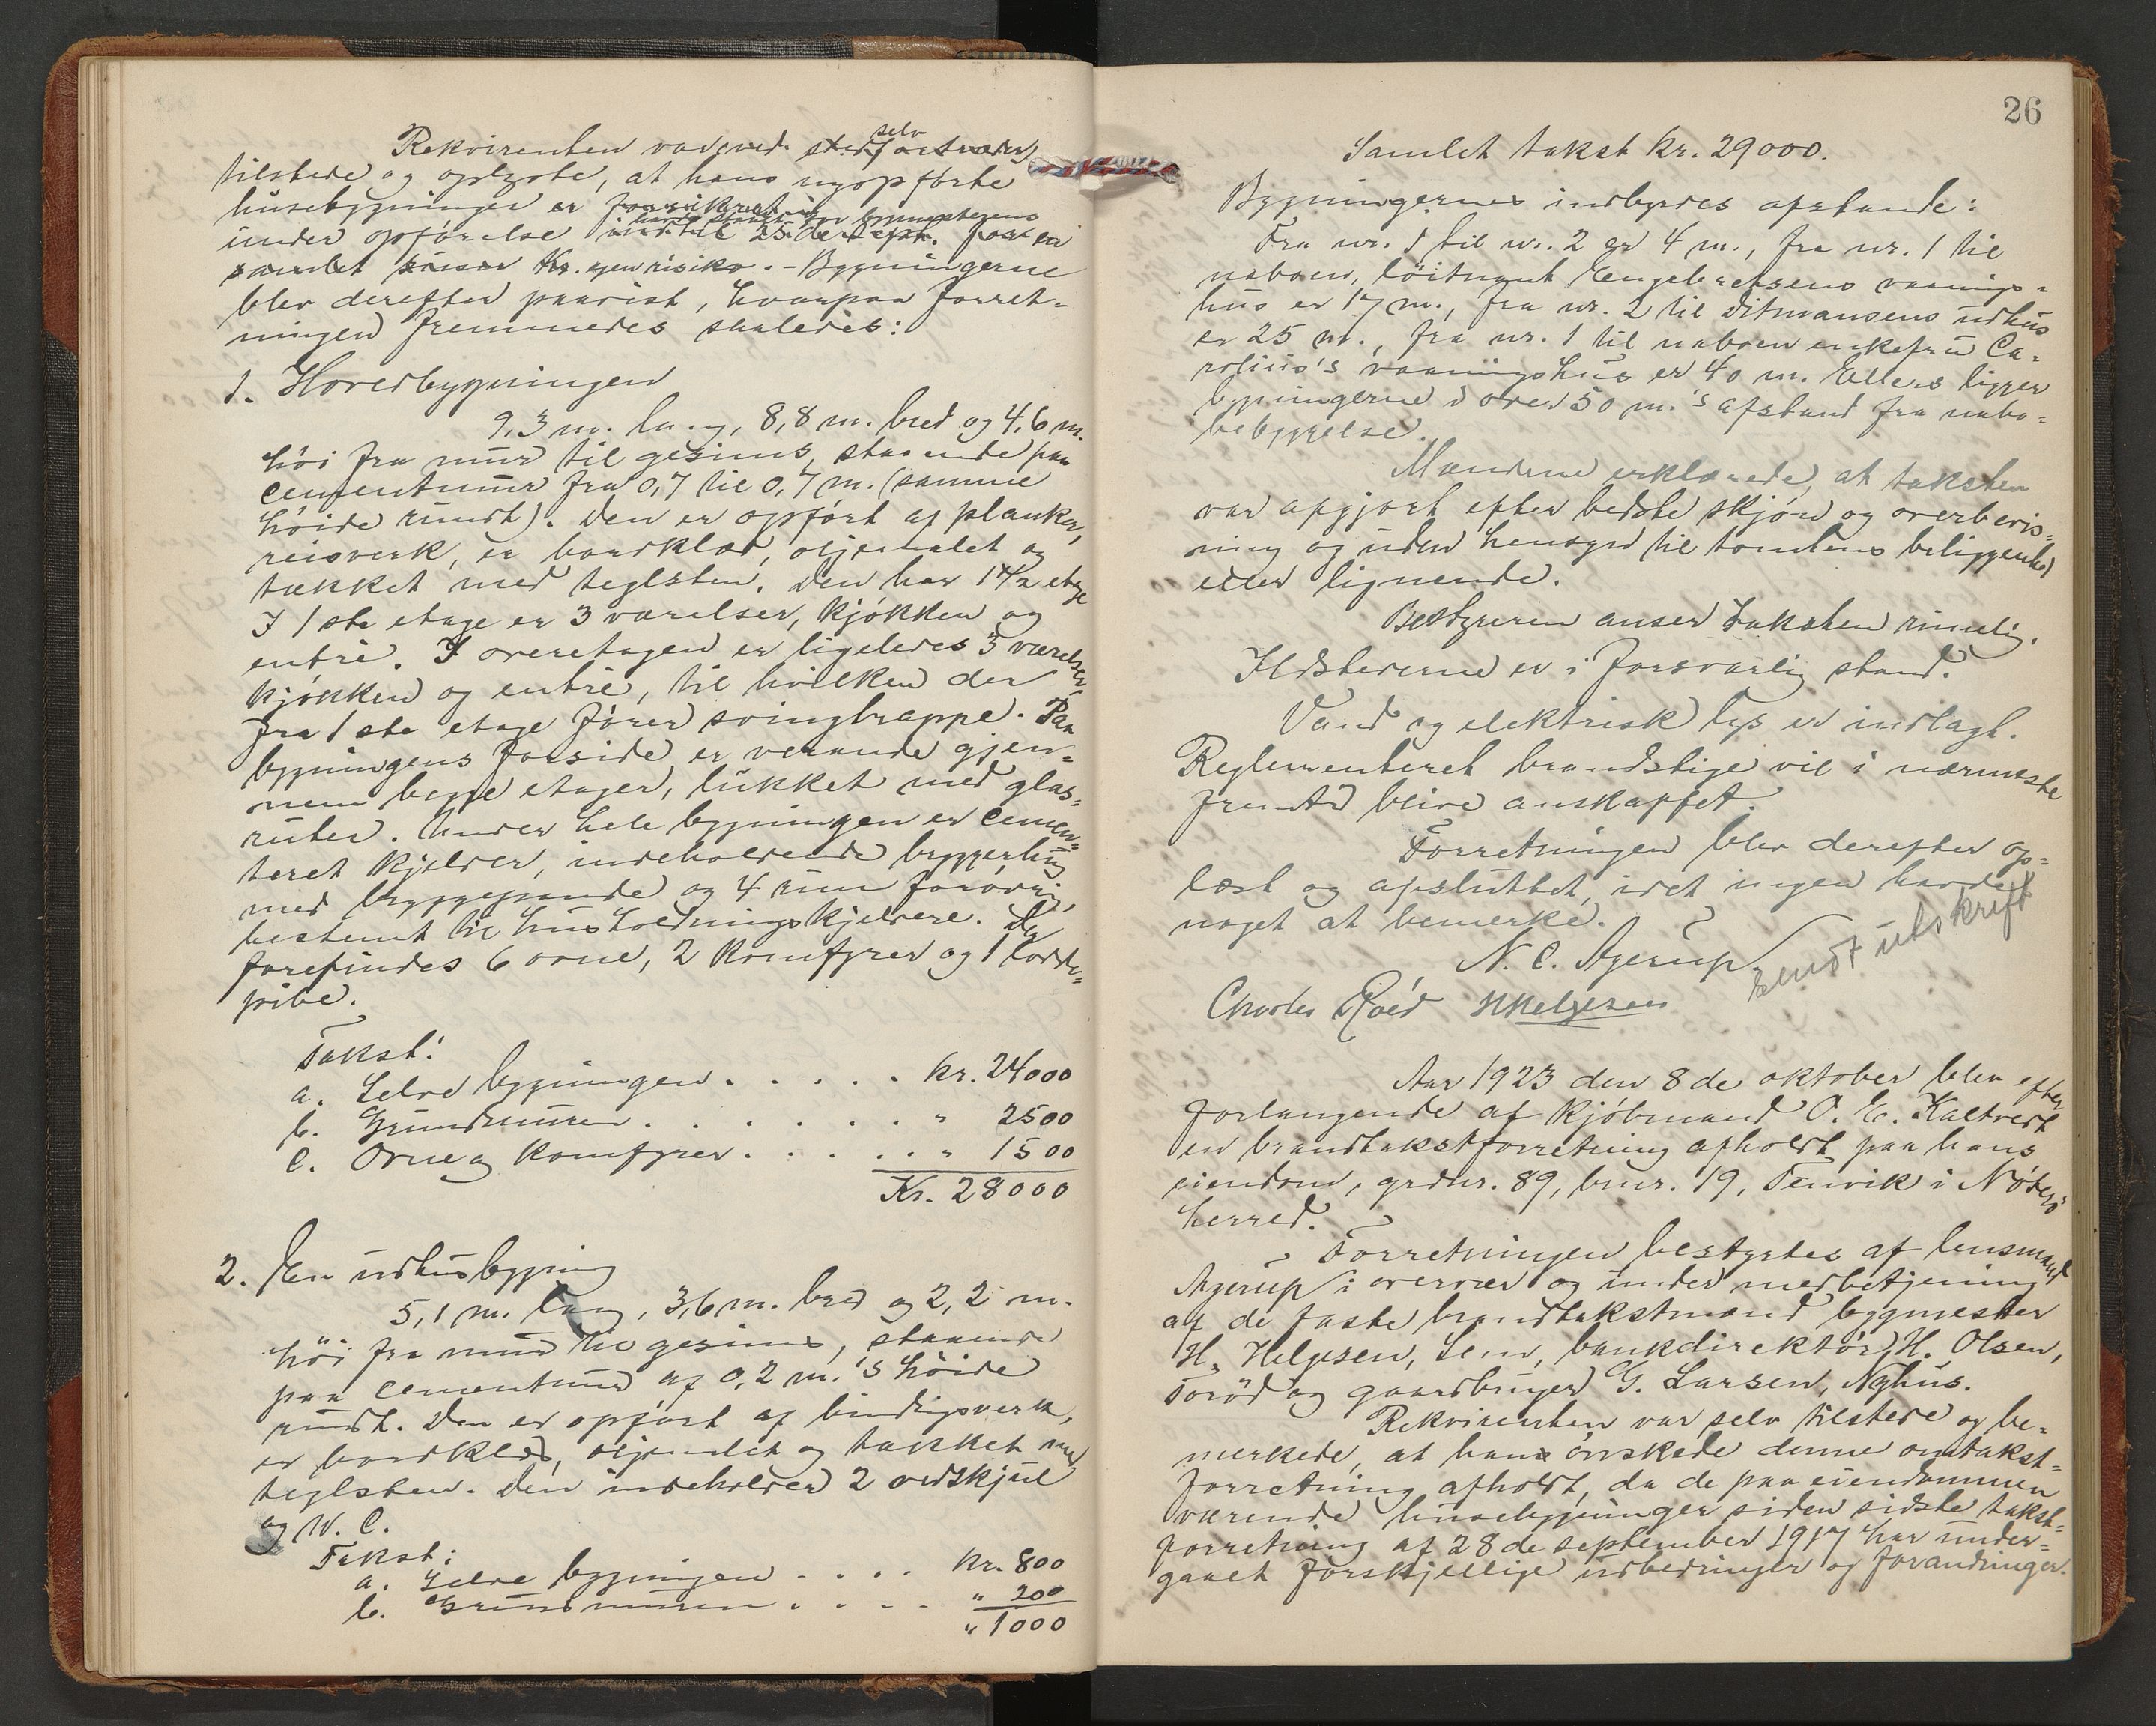 Rekvirenten var ved stedfortræder selv
tilstede og oplyste, at hans nyopførte
husebygninger er forsikret
under opførelse indtil 25de sept. for en
samlet kr. egen risiko. - Bygningerne
blev derefter paavist, hvorpaa forret-
ningen fremmedes saaledes:
1. Hovedbygningen
9,3 m. lang, 8,8 m. bred og 4,6 m.
høi fra mur til gesims, staaende paa
cementmur fra 0,7 til 0,7 m. (samme
høide rundt). Den er opført af planker,
reisverk, er bordklæd, oljemalet og
tækket med teglsten. Den har 1 1/2 etage
I 1ste etage er 3 værelser, kjøkken og
entré. I overetagen er ligeledes 3 værelser,
kjøkken og entré, til hvilken der
fra 1ste etage fører svingtrappe. Paa
bygningens forside er veranda gjen-
nem begge etager, lukket med glas-
ruter. Under hele bygningen er cemen-
teret kjelder, indeholdende bryggerhus
med bryggepande og 4 rum forøvrig,
bestemt til husholdningskjeldere. Der
forefindes 6 ovne, 2 komfyrer og 1
pibe.
Takst:
a. Selve bygningen . . . . . kr. 24000
b. Grundmuren . . . . . . . " 2500
c. Ovne og komfyrer . . . . . " 1500
Kr. 28000
2. En udhusbygning
5,1 m. lang, 3,6 m. bred og 2,2 m.
høi fra mur til gesims, staaende
paa cementmur af 0,2 m.'s høide
rundt. Den er opført af bindingsverk,
er bordklæd, oljemalet og tækket med
teglsten. Den indeholder 2 vedskjul
og W.C.
Takst:
a. Selve bygningen . . . . kr. 800
b. Grundmuren . . . . " 200
" 1000
26
Samlet takst kr. 29000.
Bygningernes indbyrdes afstande:
Fra nr. 1 til nr. 2 er 4 m., fra nr. 1 til
naboen, løitnant Engebretsens vaanings-
hus er 17 m., fra nr. 2 til Ditmansens udhus
er 25 m., fra nr. 1 til naboen enkefru Ca-
rolius's vaaningshus er 40 m. Ellers ligger
bygningerne i over 50 m.'s afstand fra nabo-
bebyggelse.
Mændene erklærede, at taksten
var afgjort efter bedste skjøn og overbevis-
ning og uden hensyn til tomtens beliggenhed
eller lignende.
Bestyreren anser taksten rimelig.
Ildstederne er i forsvarlig stand.
Vand og elektrisk lys er indlagt.
Reglementeret brandstige vil i nærmeste
fremtid blive anskaffet.
Forretningen blev derefter op-
læst og afsluttet, idet ingen havde
noget at bemerke.
N. C. Agerup
sendt utskrift
Charles Róed HHelgesen
Aar 1923 den 8de oktober blev efter
forlangende af kjøbmand O. E. Kaltvedt
en brandtakstforretning afholdt paa hans
eiendom, grdnr. 89, brnr. 19, Tenvik i Nøterø
herred.
Forretningen bestyrtes af lensmand
Agerup i overvær og under medbetjening
af de faste brandtakstmænd bygmester
H. Helgesen, Sem, bankdirektør H. Olsen,
Torød og gaardbruger G. Larsen, Nyhus.
Rekvirenten var selv tilstede og be-
merkede, at han ønskede denne omtakst-
forretning afholdt, da de paa eiendommen
værende husebygninger siden sidste takst-
forretning af 28de september 1917 har under-
gaaet forskjellige udbedringer og forandringer.